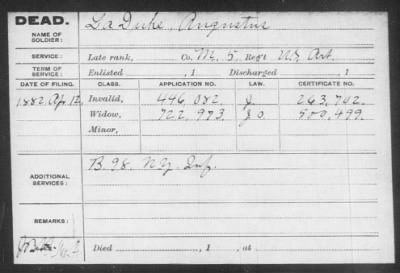 DEAD.
La Duke, Augustus
NAME OF
SOLDIER:
SERVICE:
Late rank, Co. M, 5 Reg't Art.
TERM OF
SERVICE:
Enlisted , 1 Discharged , 1
DATE OF FILING. CLASS. APPLICATION NO. LAW. CERTIFICATE NO.
1882, Apr. 12, Invalid, 446,082. J. 263,742.
Widow, 722,973 500,499.
Minor,
ADDITIONAL
SERVICES:
B. 98. N.Y. Inf.
REMARKS:
Died , 1 , at